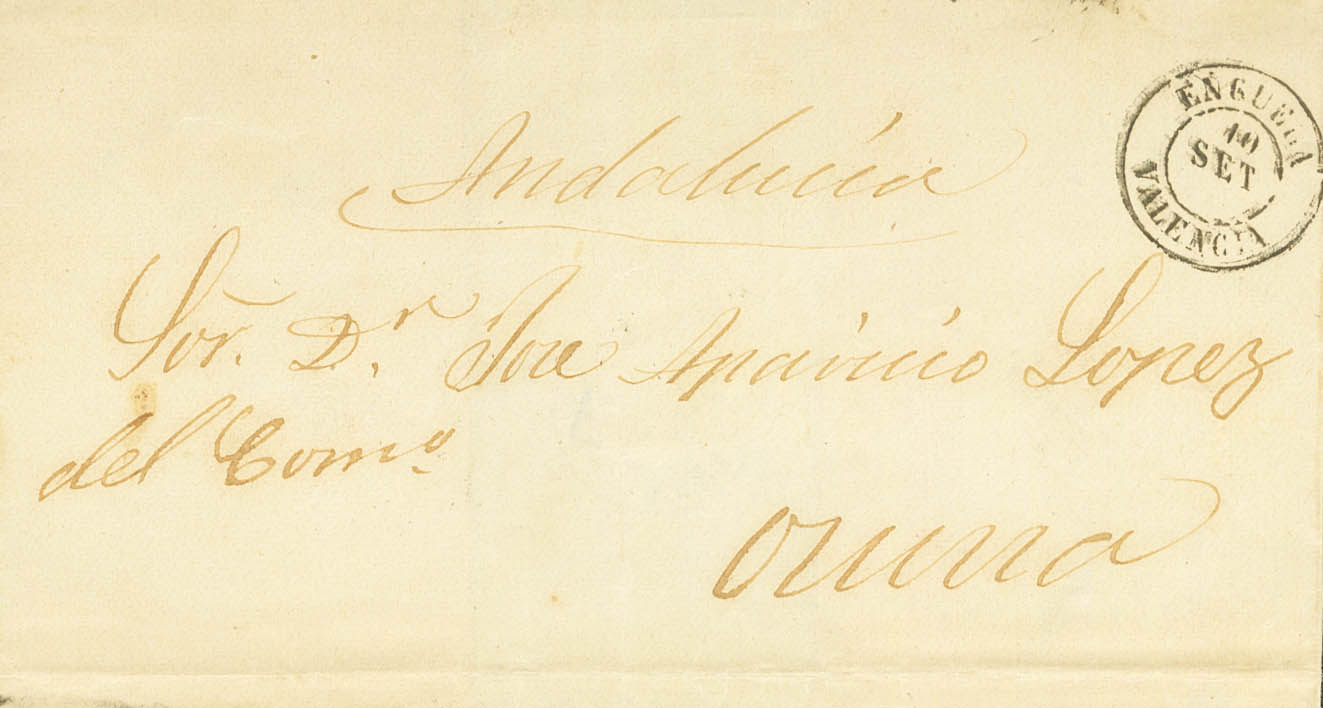 Andalucia
ENGUERA
10
SET
VALENCIA
Sor. Dn. Jose Aparicio Lopez
del Como
Osuna